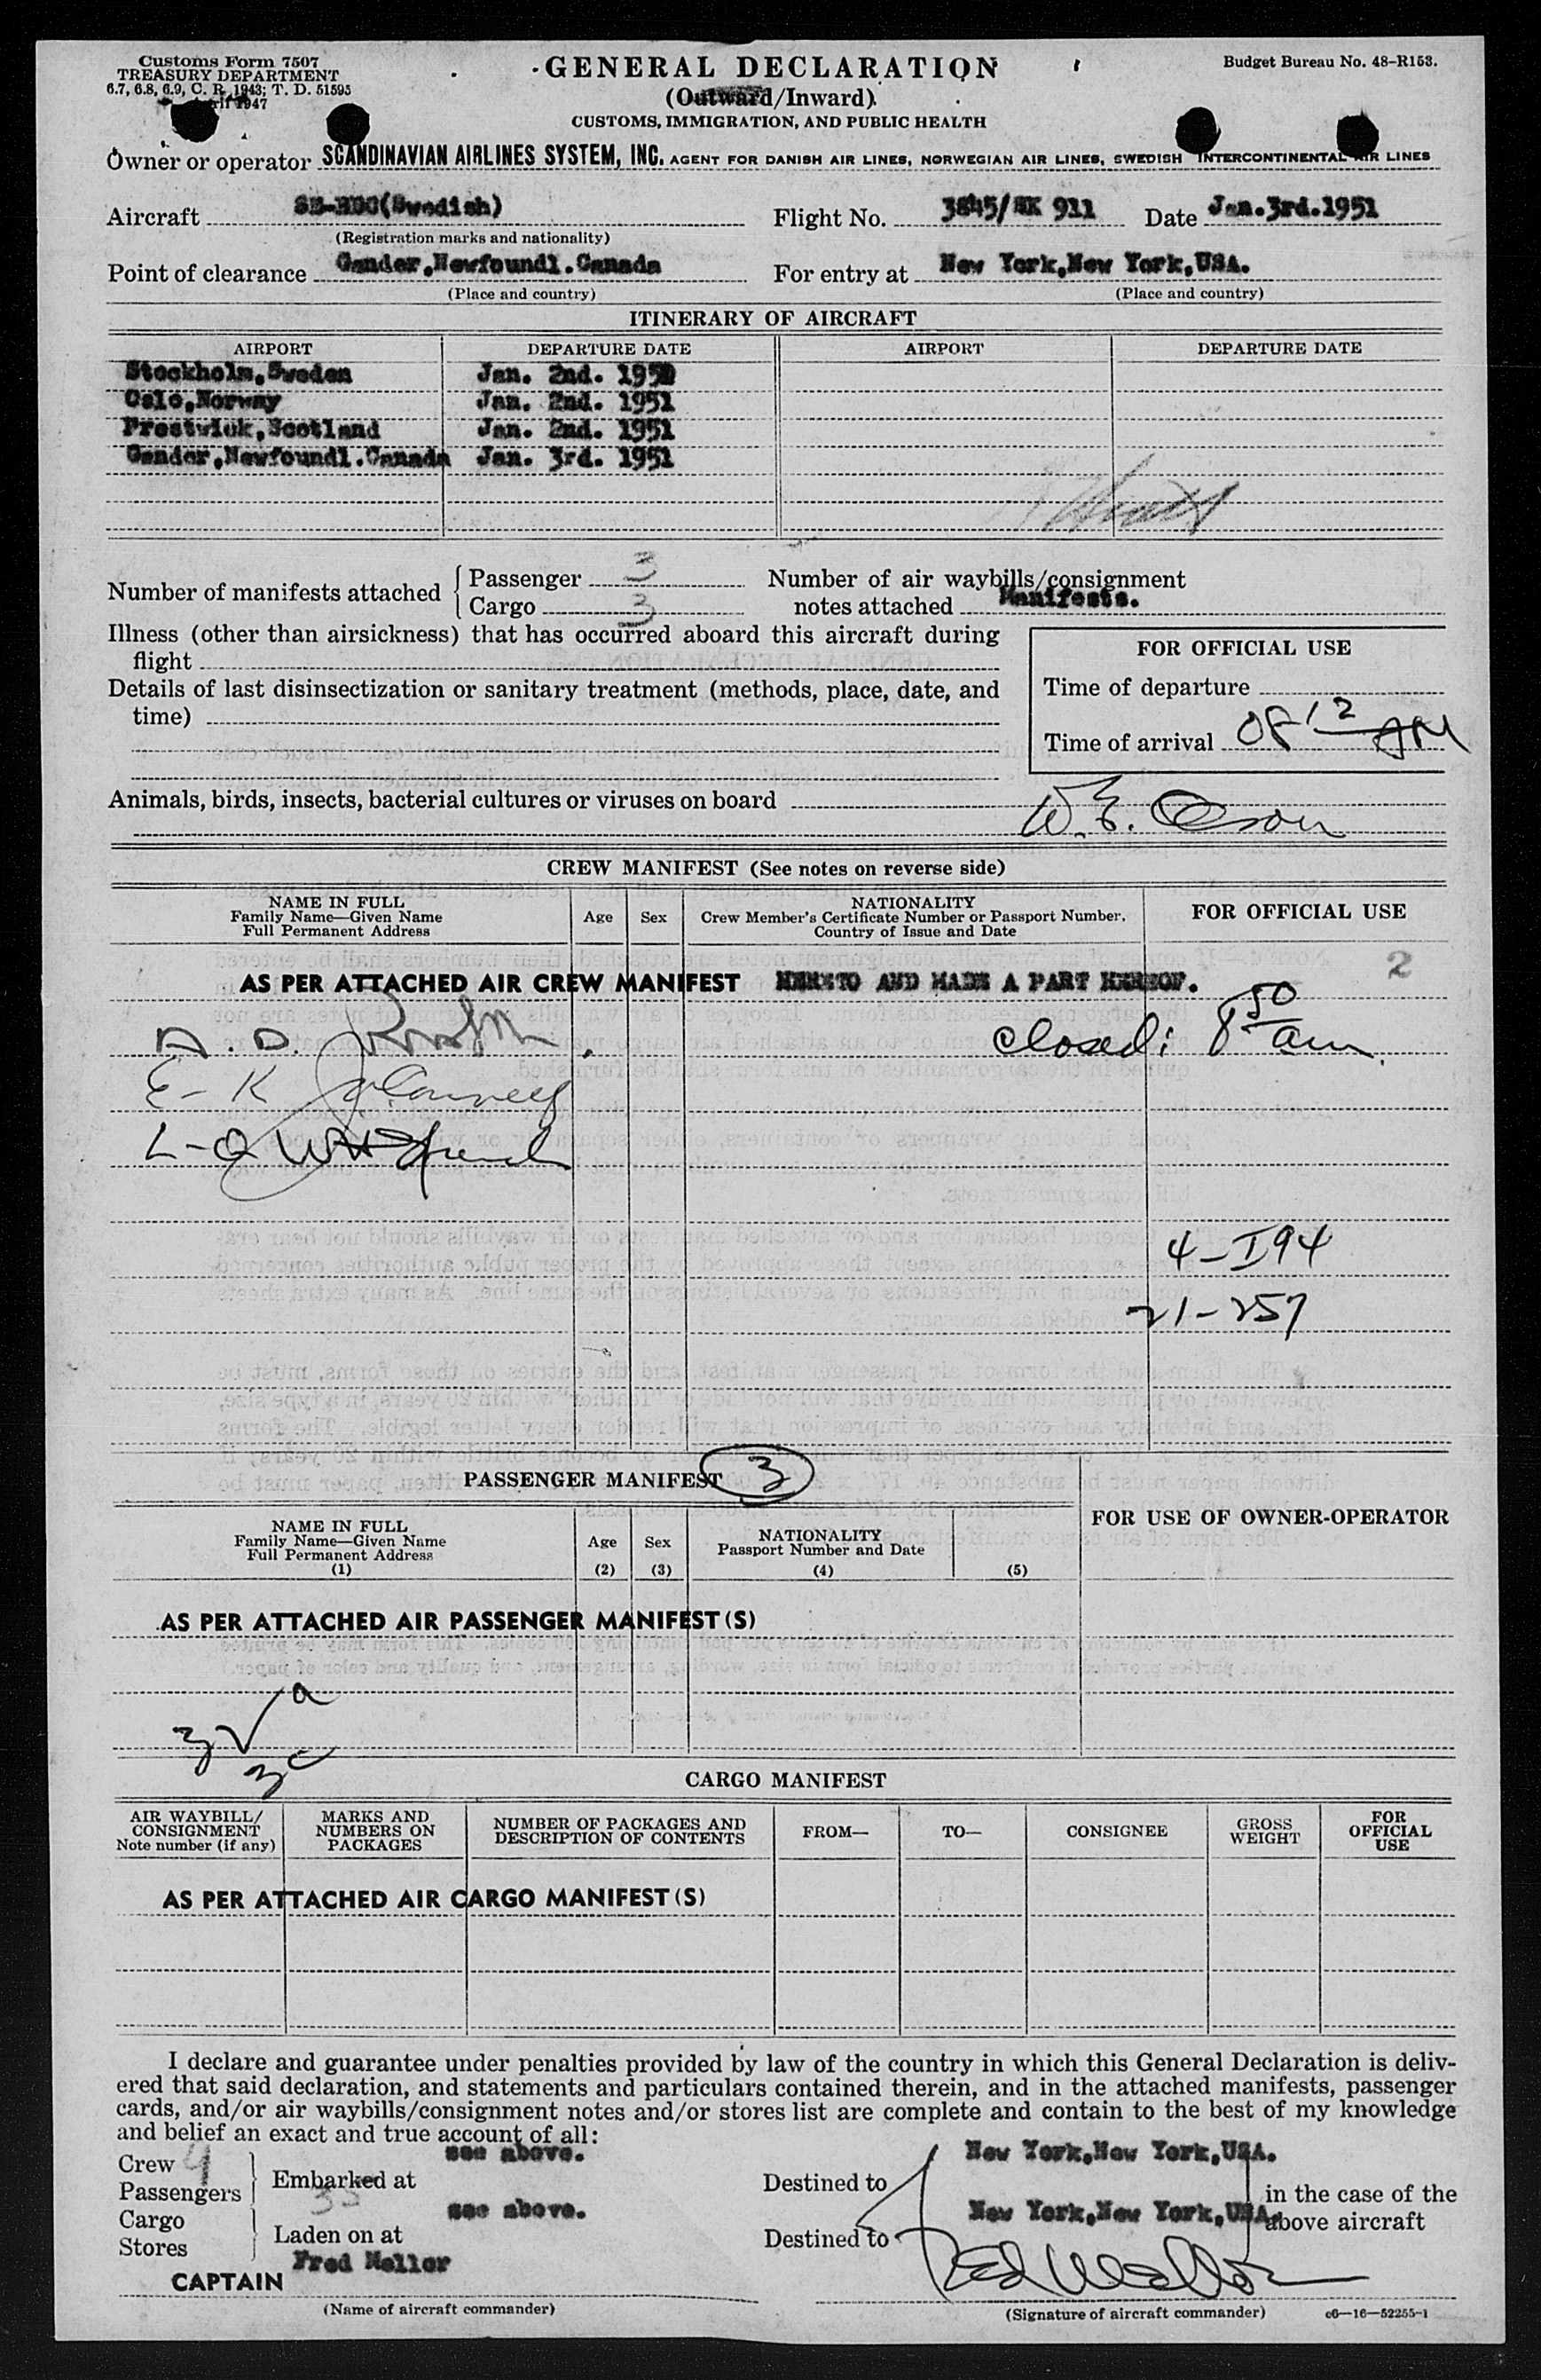 Customs Form 7507
TREASURY DEPARTMENT
6.7, 6.8, 6.9, C. R. 1943; T. D. 51595
1947
GENERAL DECLARATION
(Outward/Inward)
CUSTOMS, IMMIGRATION, AND PUBLIC HEALTH
Budget Bureau No. 48-R153.
Owner or operator SCANDINAVIAN AIRLINES SYSTEM, INC. AGENT FOR DANISH AIR LINES, NORWEGIAN AIR LINES, SWEDISH INTERCONTINENTAL AIR LINES
Aircraft (Swedish) Flight No. 3845/SK 911 Date Jan.3rd.1951
(Registration marks and nationality)
Point of clearance Gander,Newfoundl.Canada For entry at New York,New York,USA.
(Place and country) (Place and country)
ITINERARY OF AIRCRAFT
AIRPORT DEPARTURE DATE AIRPORT DEPARTURE DATE
Stockholm,Sweden Jan. 2nd.
Oslo,Norway Jan. 2nd. 1951
Prestwick,Scotland Jan. 2nd. 1951
Gander,Newfoundl.Canada Jan. 3rd. 1951
Number of manifests attached Passenger 3 Number of air waybills/consignment
Cargo 3 notes attached Manifests.
Illness (other than airsickness) that has occurred aboard this aircraft during
flight
Details of last disinsectization or sanitary treatment (methods, place, date, and
time)
FOR OFFICIAL USE
Time of departure
Time of arrival 08 12 AM
Animals, birds, insects, bacterial cultures or viruses on board
W. E. Olson
CREW MANIFEST (See notes on reverse side)
NAME IN FULL
Family Name—Given Name
Full Permanent Address
Age Sex
NATIONALITY
Crew Member's Certificate Number or Passport Number,
Country of Issue and Date
FOR OFFICIAL USE
2
AS PER ATTACHED AIR CREW MANIFEST HERETO AND MADE A PART HEREOF.
A. D.
closed: 8 50 am.
E- K
L-O
4-I94
21-257
PASSENGER MANIFEST 3
NAME IN FULL
Family Name—Given Name
Full Permanent Address
(1)
Age
(2)
Sex
(3)
NATIONALITY
Passport Number and Date
(4)
(5)
FOR USE OF OWNER-OPERATOR
AS PER ATTACHED AIR PASSENGER MANIFEST(S)
3 √ a
3 c
CARGO MANIFEST
AIR WAYBILL/
CONSIGNMENT
Note number (if any)
MARKS AND
NUMBERS ON
PACKAGES
NUMBER OF PACKAGES AND
DESCRIPTION OF CONTENTS
FROM—
TO—
CONSIGNEE
GROSS
WEIGHT
FOR
OFFICIAL
USE
AS PER ATTACHED AIR CARGO MANIFEST(S)
I declare and guarantee under penalties provided by law of the country in which this General Declaration is deliv-
ered that said declaration, and statements and particulars contained therein, and in the attached manifests, passenger
cards, and/or air waybills/consignment notes and/or stores list are complete and contain to the best of my knowledge
and belief an exact and true account of all:
Crew 4
Passengers 33
Embarked at see above.
Destined to New York,New York,USA.
Cargo
Stores
Laden on at see above.
Destined to New York,New York,USA.
in the case of the
above aircraft
CAPTAIN Fred Mellor
(Name of aircraft commander)
(Signature of aircraft commander) c6—16—52255-1